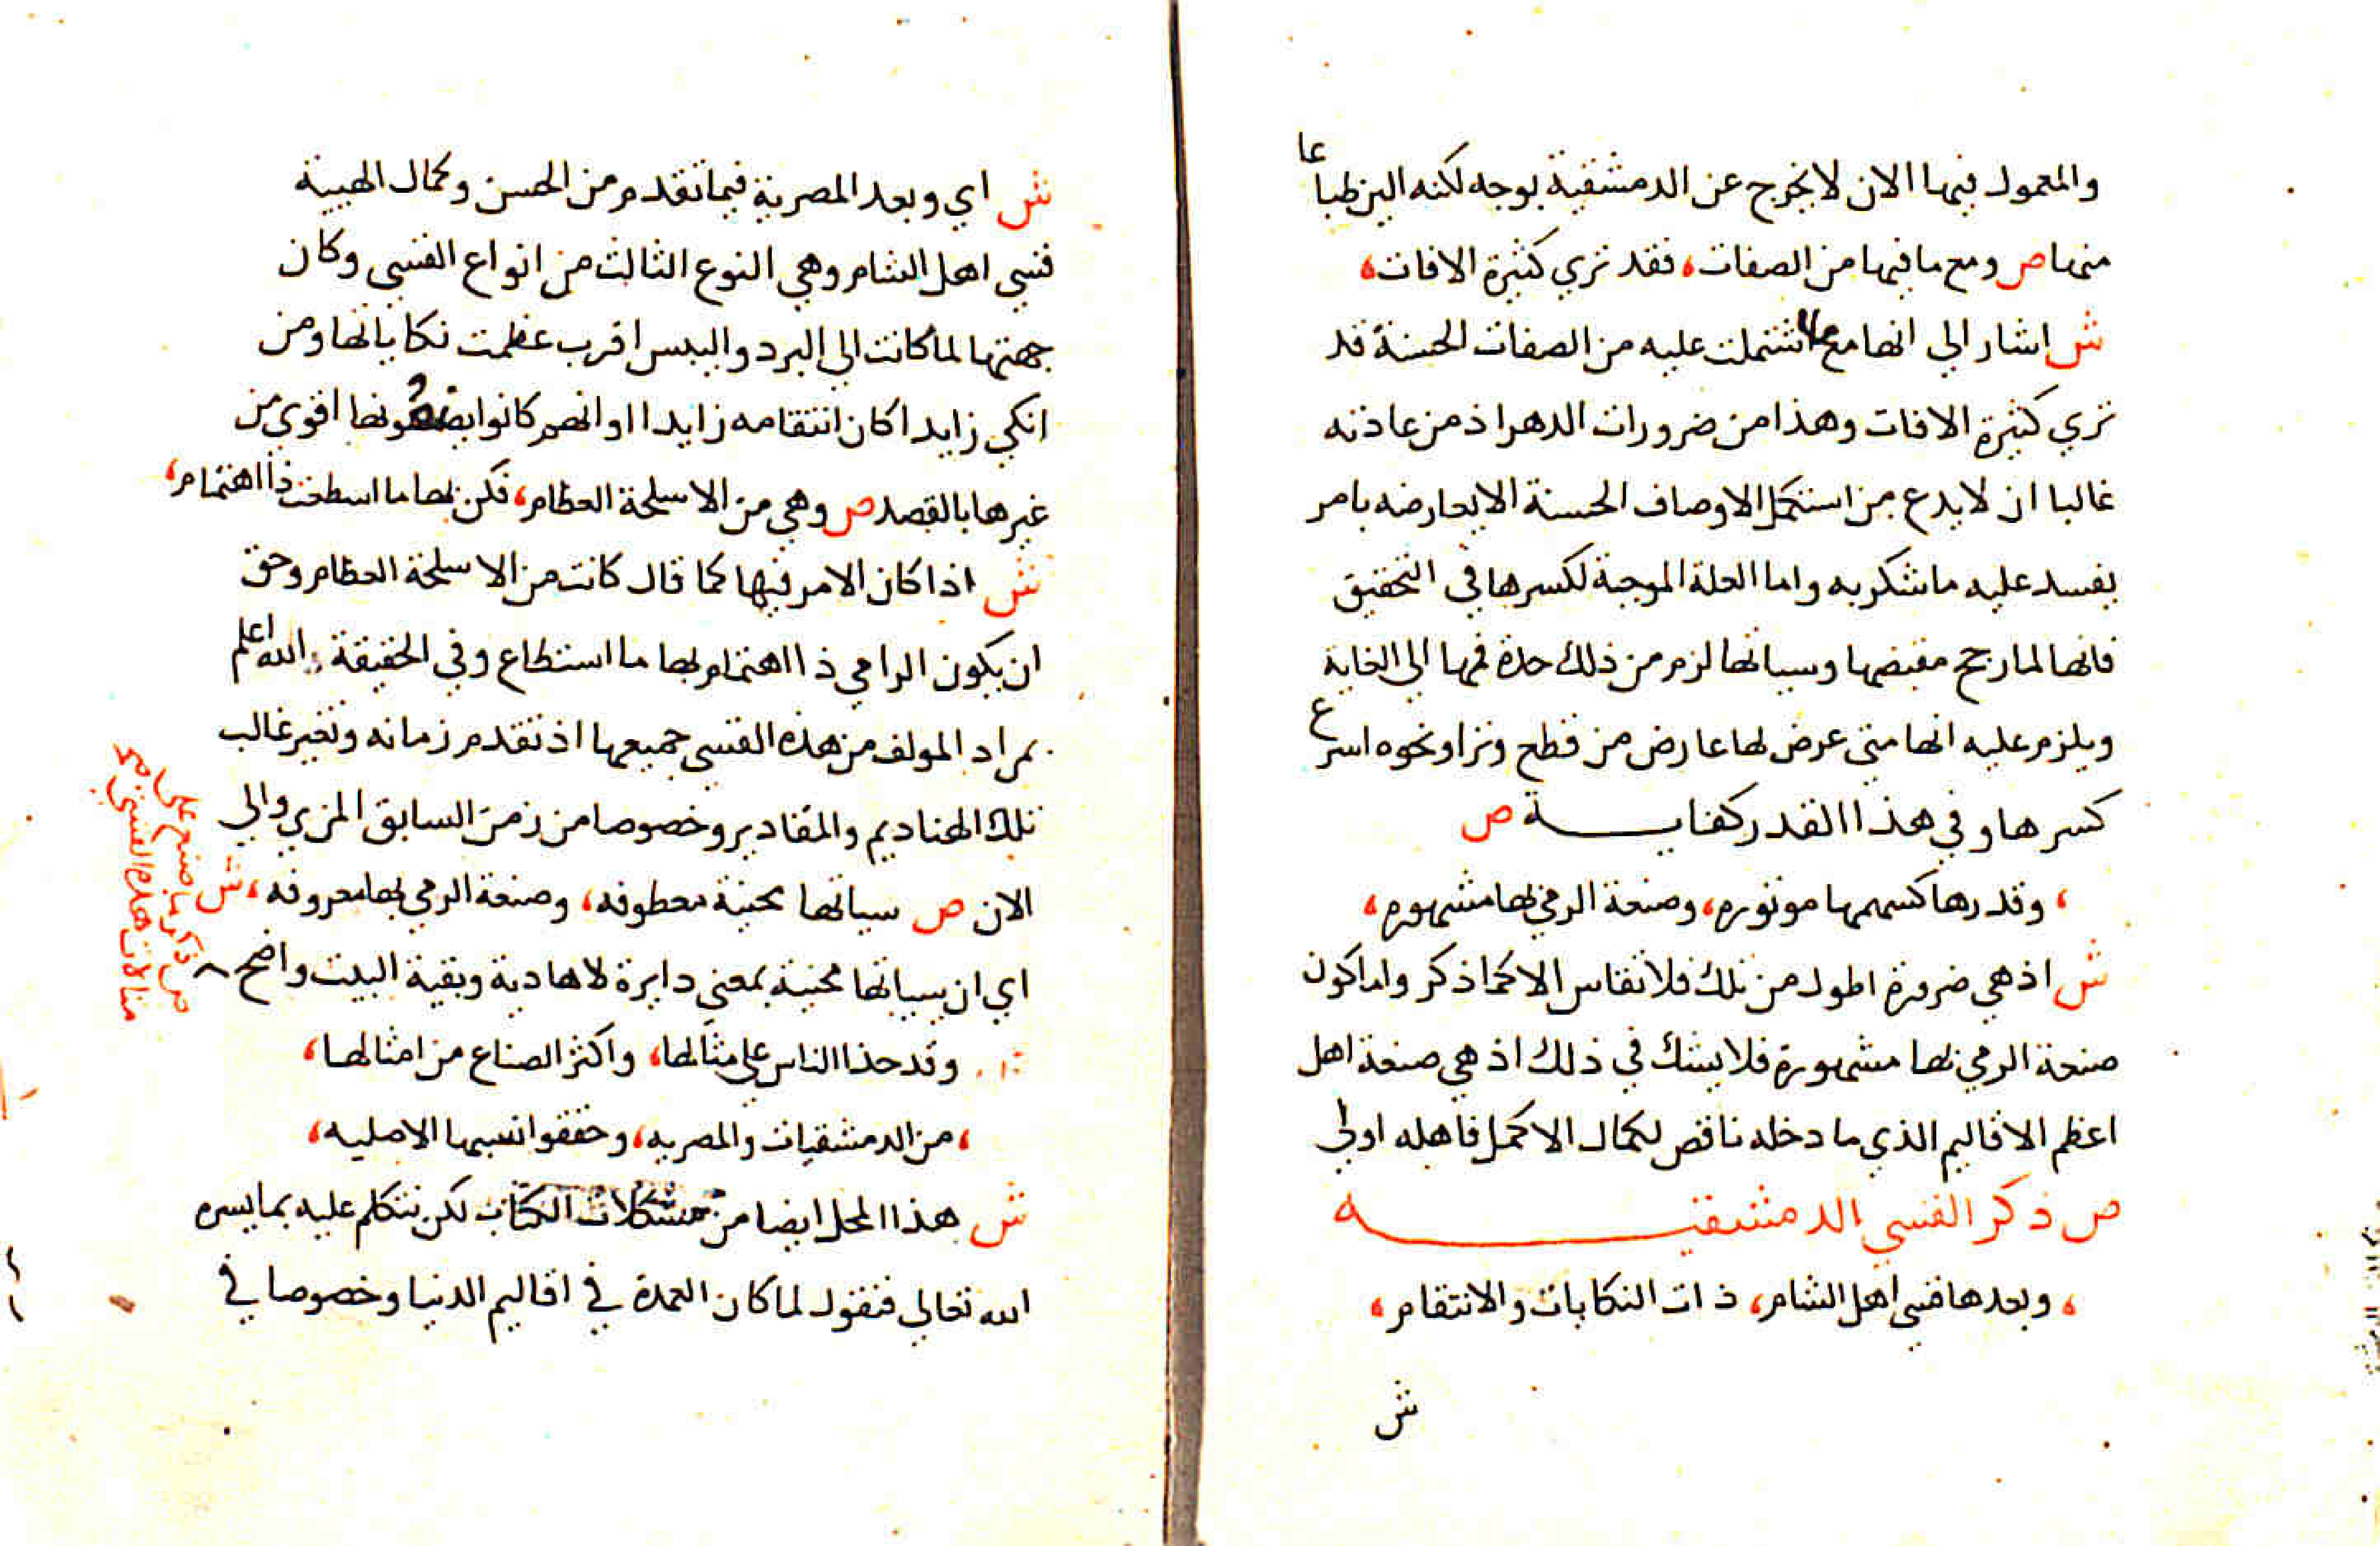 والمعمول فيها الان لا يخرج عن الدمشقية بوجه لكنه الين طباعا
منها ص ومع ما فيها من الصفات، فقد تري كثيرة الافات،
ش اشار الي انها مع ما اشتملت عليه من الصفات الحسنة قد
تري كثيرة الافات وهذا من ضرورات الدهر اذ من عادته
غالبا ان لا يدع من استكمل الاوصاف الحسنة الا يعارضه بامر
يفسد عليه ما شكر به واما العلة الموجبة لكسرها في التحقيق
فانها لما رجح مقبضها وسياتها لزم من ذلك حدة فمها الي الغاية
ويلزم عليه انها متي عرض لها عارض من قطع وتر او نحوه اسرع
كسرها وفي هذا القدر كفايــة ص
، وقدرها كسهمها موتوره، وصنعة الرمي بها مشهوره،
ش اذ هي ضرورة اطول من تلك فلا تقاس الا كما ذكر واما كون
صنعة الرمي بها مشهورة فلا يشك في ذلك اذ هي صنعة اهل
اعظم الاقاليم الذي ما دخله ناقص لكمال الا كمل فاهله اولي
ص ذكر القسي الدمشقيــه
، وبعدها قسي اهل الشام، ذات النكايات والانتقام،
ش
ش اي وبعد المصرية فيما تقدم من الحسن وكمال الهيبة
قسي اهل الشام وهي النوع الثالث من انواع القسي وكان
جهتها لما كانت الي البرد واليبس اقرب عظمت نكاياتها ومن
انكي زايدا كان انتقامه زايدا او انهم كانوا يصنعونها اقوي من
غيرها بالقصد ص وهي من الاسلحة العظام، فكن بها ما اسطعت ذا اهتمام،
ش اذا كان الامر فيها كما قال كانت من الاسلحة العظام وحق
ان يكون الرامي ذا اهتمام بها ما استطاع وفي الحقيقة الله اعلم
بمراد المولف من هذه القسي جميعها اذ تقدم زمانه وتغير غالب
تلك الهناديم والمقادير وخصوصا من زمن السابق المزي والي
الان ص سياتها محنية معطوفه، وصنعة الرمي بها معروفه، ش
اي ان سياتها محنية بمعني دايرة لا هادية وبقية البيت واضح
ص ذكر ما صنع علي
مثالات هذه القسي
وقد حذا الناس علي مثالها، واكثر الصناع من امثالها،
، من الدمشقيات والمصريه، وحققوا نسبها الاصليه،
ش هذا المحل ايضا من مشكلات الكتاب لكن نتكلم عليه بما يسره
الله تعالي فنقول لما كان العمدة في اقاليم الدنيا وخصوصا في